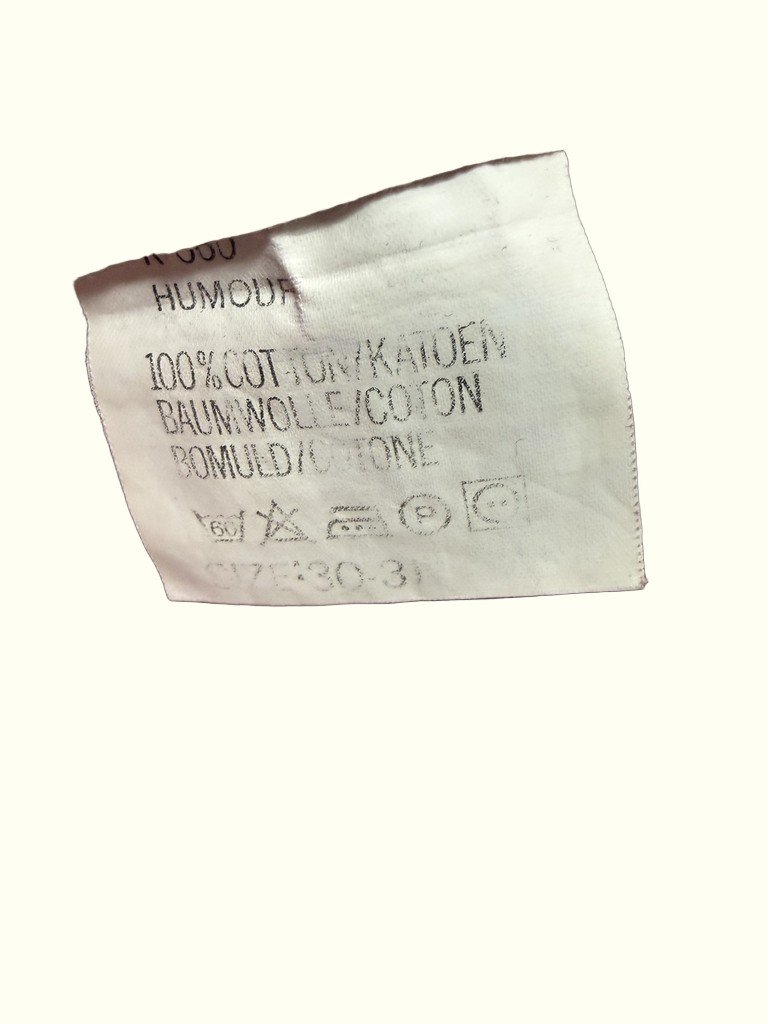 HUMOUR
100%COTTON/KATOEN
BAUMWOLLE/COTON
BOMULD/COTONE
60 P
SIZE:30-31